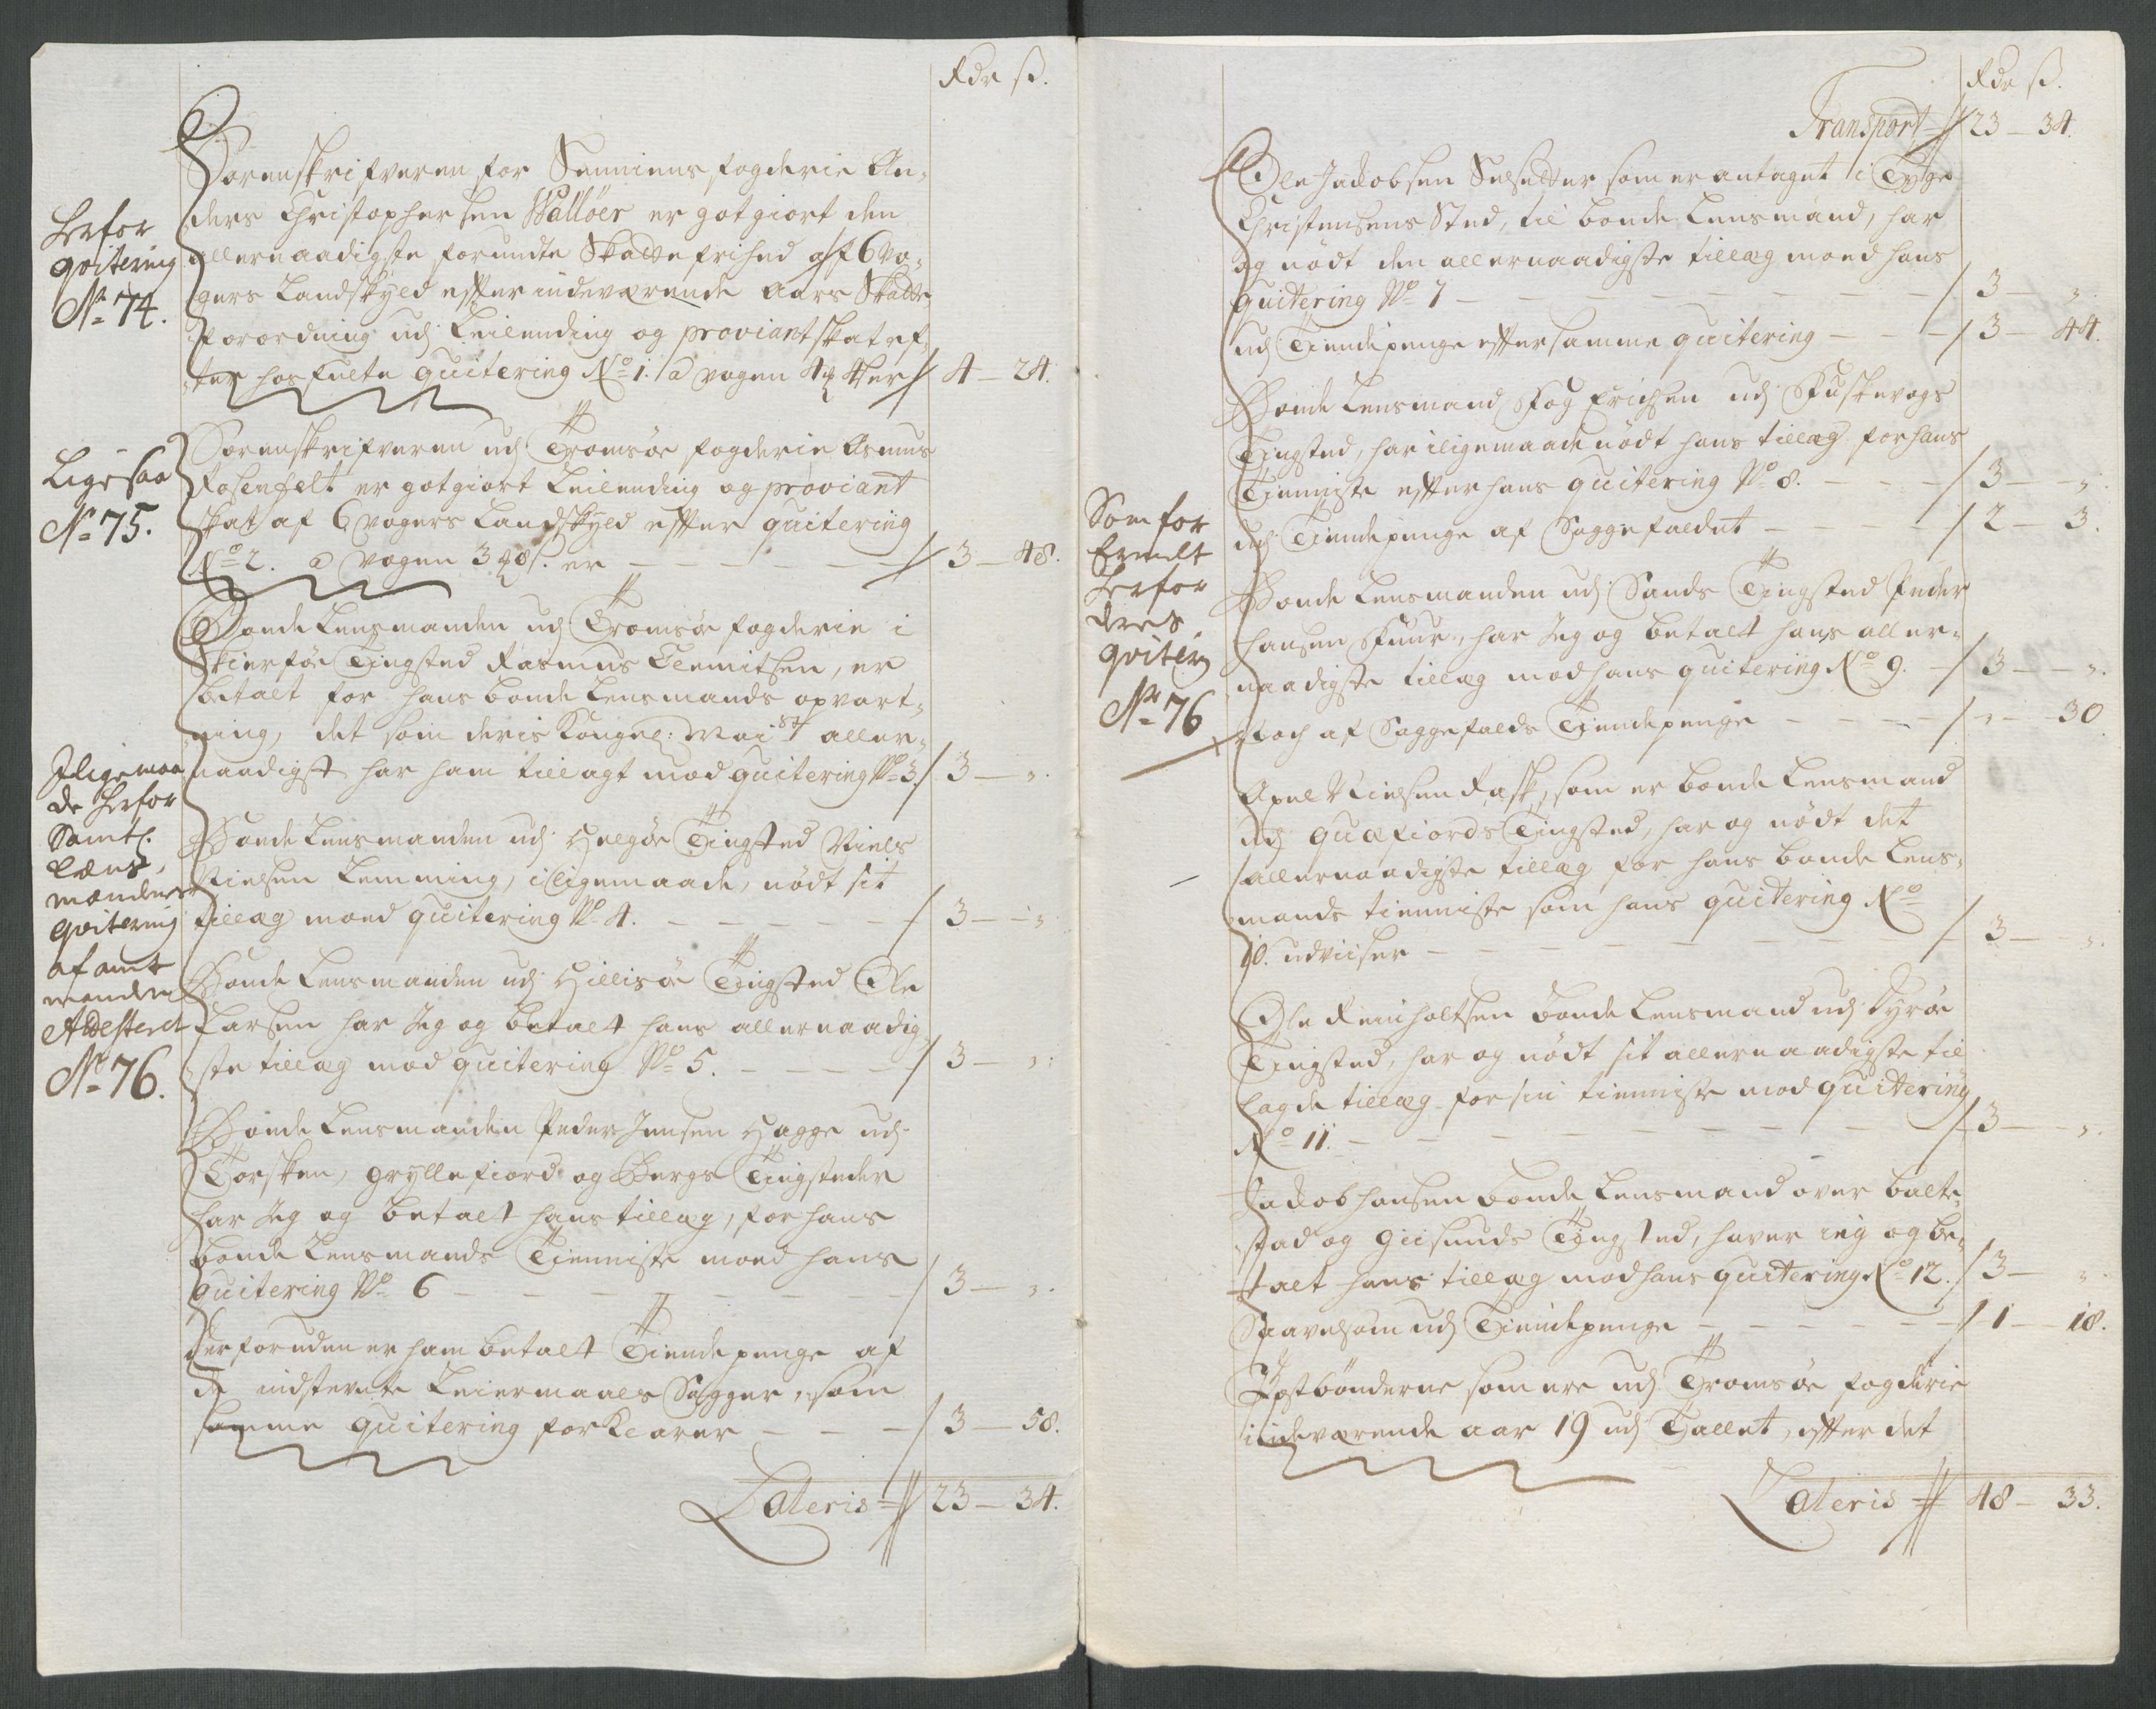 Rdr ß.
Sorenskrifveren for Senniens fogderie An-
ders Christophersen Walløer er gotgiort den
allernaadigste forundte Skatte frihed af 6 vo-
gers Landskyld effter indeværende Aars Skatte
forordning udj Leilending og proviantskat ef-
ter hosfulte quitering No 1. a vogen 4 er 4 — 24.
Sorenskrifveren udj Tromsøe fogderie Asmus
Rosenfelt er gotgiort Leilending og proviant
skat af 6 vogers Landskyld effter quitering
No 2. a vogen 3 8 ß. er — 3 — 48.
Bonde Lensmanden udj Tromsøe fogderie i
Skierføe Tingsted Rasmus Clemitsen, er
betalt for hans bonde Lensmands opvart-
ning, det som deris Kongel: Mai:st aller-
naadigst har ham tillagt mod quitering No 3. 3 — „.
Bonde Lensmanden udj Helgøe Tingsted Niels
Nielsen Lemming, i ligemaade, nødt sit
tillæg moed quitering No 4. — 3 — „.
Bonde Lensmanden udj Hillisøe Tingsted Ole
Larsen har Jeg og betalt hans allernaadig-
ste tillæg mod quitering No 5. — 3 — „.
Bonde Lensmanden Peder Jensen Hagge udj
Torsken, Gryllefiord og Bergs Tingsteder
har Jeg og betalt hans tillæg, for hans
bonde Lensmands Tienniste moed hans
quitering No 6 — 3 — „.
Derforuden er ham betalt Tiendepenge af
de indstevnte Leiermaals Sagger, som
samme quitering forklarer — 3 — 58.
Lateris 23 — 34.
Herfor
qvitering
No 74.
Ligesaa
No 75.
Iligemaa
de herfor
Samtl.
Læns-
mændenes
Qvitering
af amt
manden
Attesteret
No 76.
Rdr ß.
Transport 23 — 34.
Ole Jacobsen Selsetter som er antaget i Tyge
Christensens Sted, til bonde Lensmand, har
og nødt den allernaadigste tillæg moed hans
quitering No 7 — 3 — „.
udj Tiendepenge effter samme quitering — 3 — 44.
Bonde Lensmand Erichsen udj Fuskevogs
Tingsted, har iligemaade nødt hans tillæg for hans
Tienniste effter hans quitering No 8. — 3 — „.
udj Tiendepenge af Saggefaldet — 2 — 3.
Bonde Lensmanden udj Sands Tingsted Peder
Hansen Fuur, har Jeg og betalt hans aller-
naadigste tillæg mod hans quitering No 9. — 3 — „.
Noch af Saggefalds Tiendepenge — „ — 30
Axel Nielsen Rask, som er bonde Lensmand
udj Quæfiords Tingsted, har og nødt det
allernaadigste tillæg for hans bonde Lens-
mands tienniste som hans quitering No
10. udviiser — 3 — „.
Ole Reinholtsen bonde Lensmand udj Dyrøe
Tingsted, har og nødt sit allernaadigste til
lagde tillæg for sin tienniste mod quitering
No 11. — 3 — „.
Jacob Hansen bonde Lensmand over Balte-
stad og Giisunds Tingsted, haver ieg og be-
talt hans tillæg mod hans quitering No 12. 3 — „.
Saavelsom udj Tiendepenge — 1 — 18.
Postbønderne som ere udj Tromsøe fogderie
indeværende aar 19 udj Tallet, effter det
Lateris 48 — 33.
Som for
Ermelt
herfor
deres
qvitering
No 76